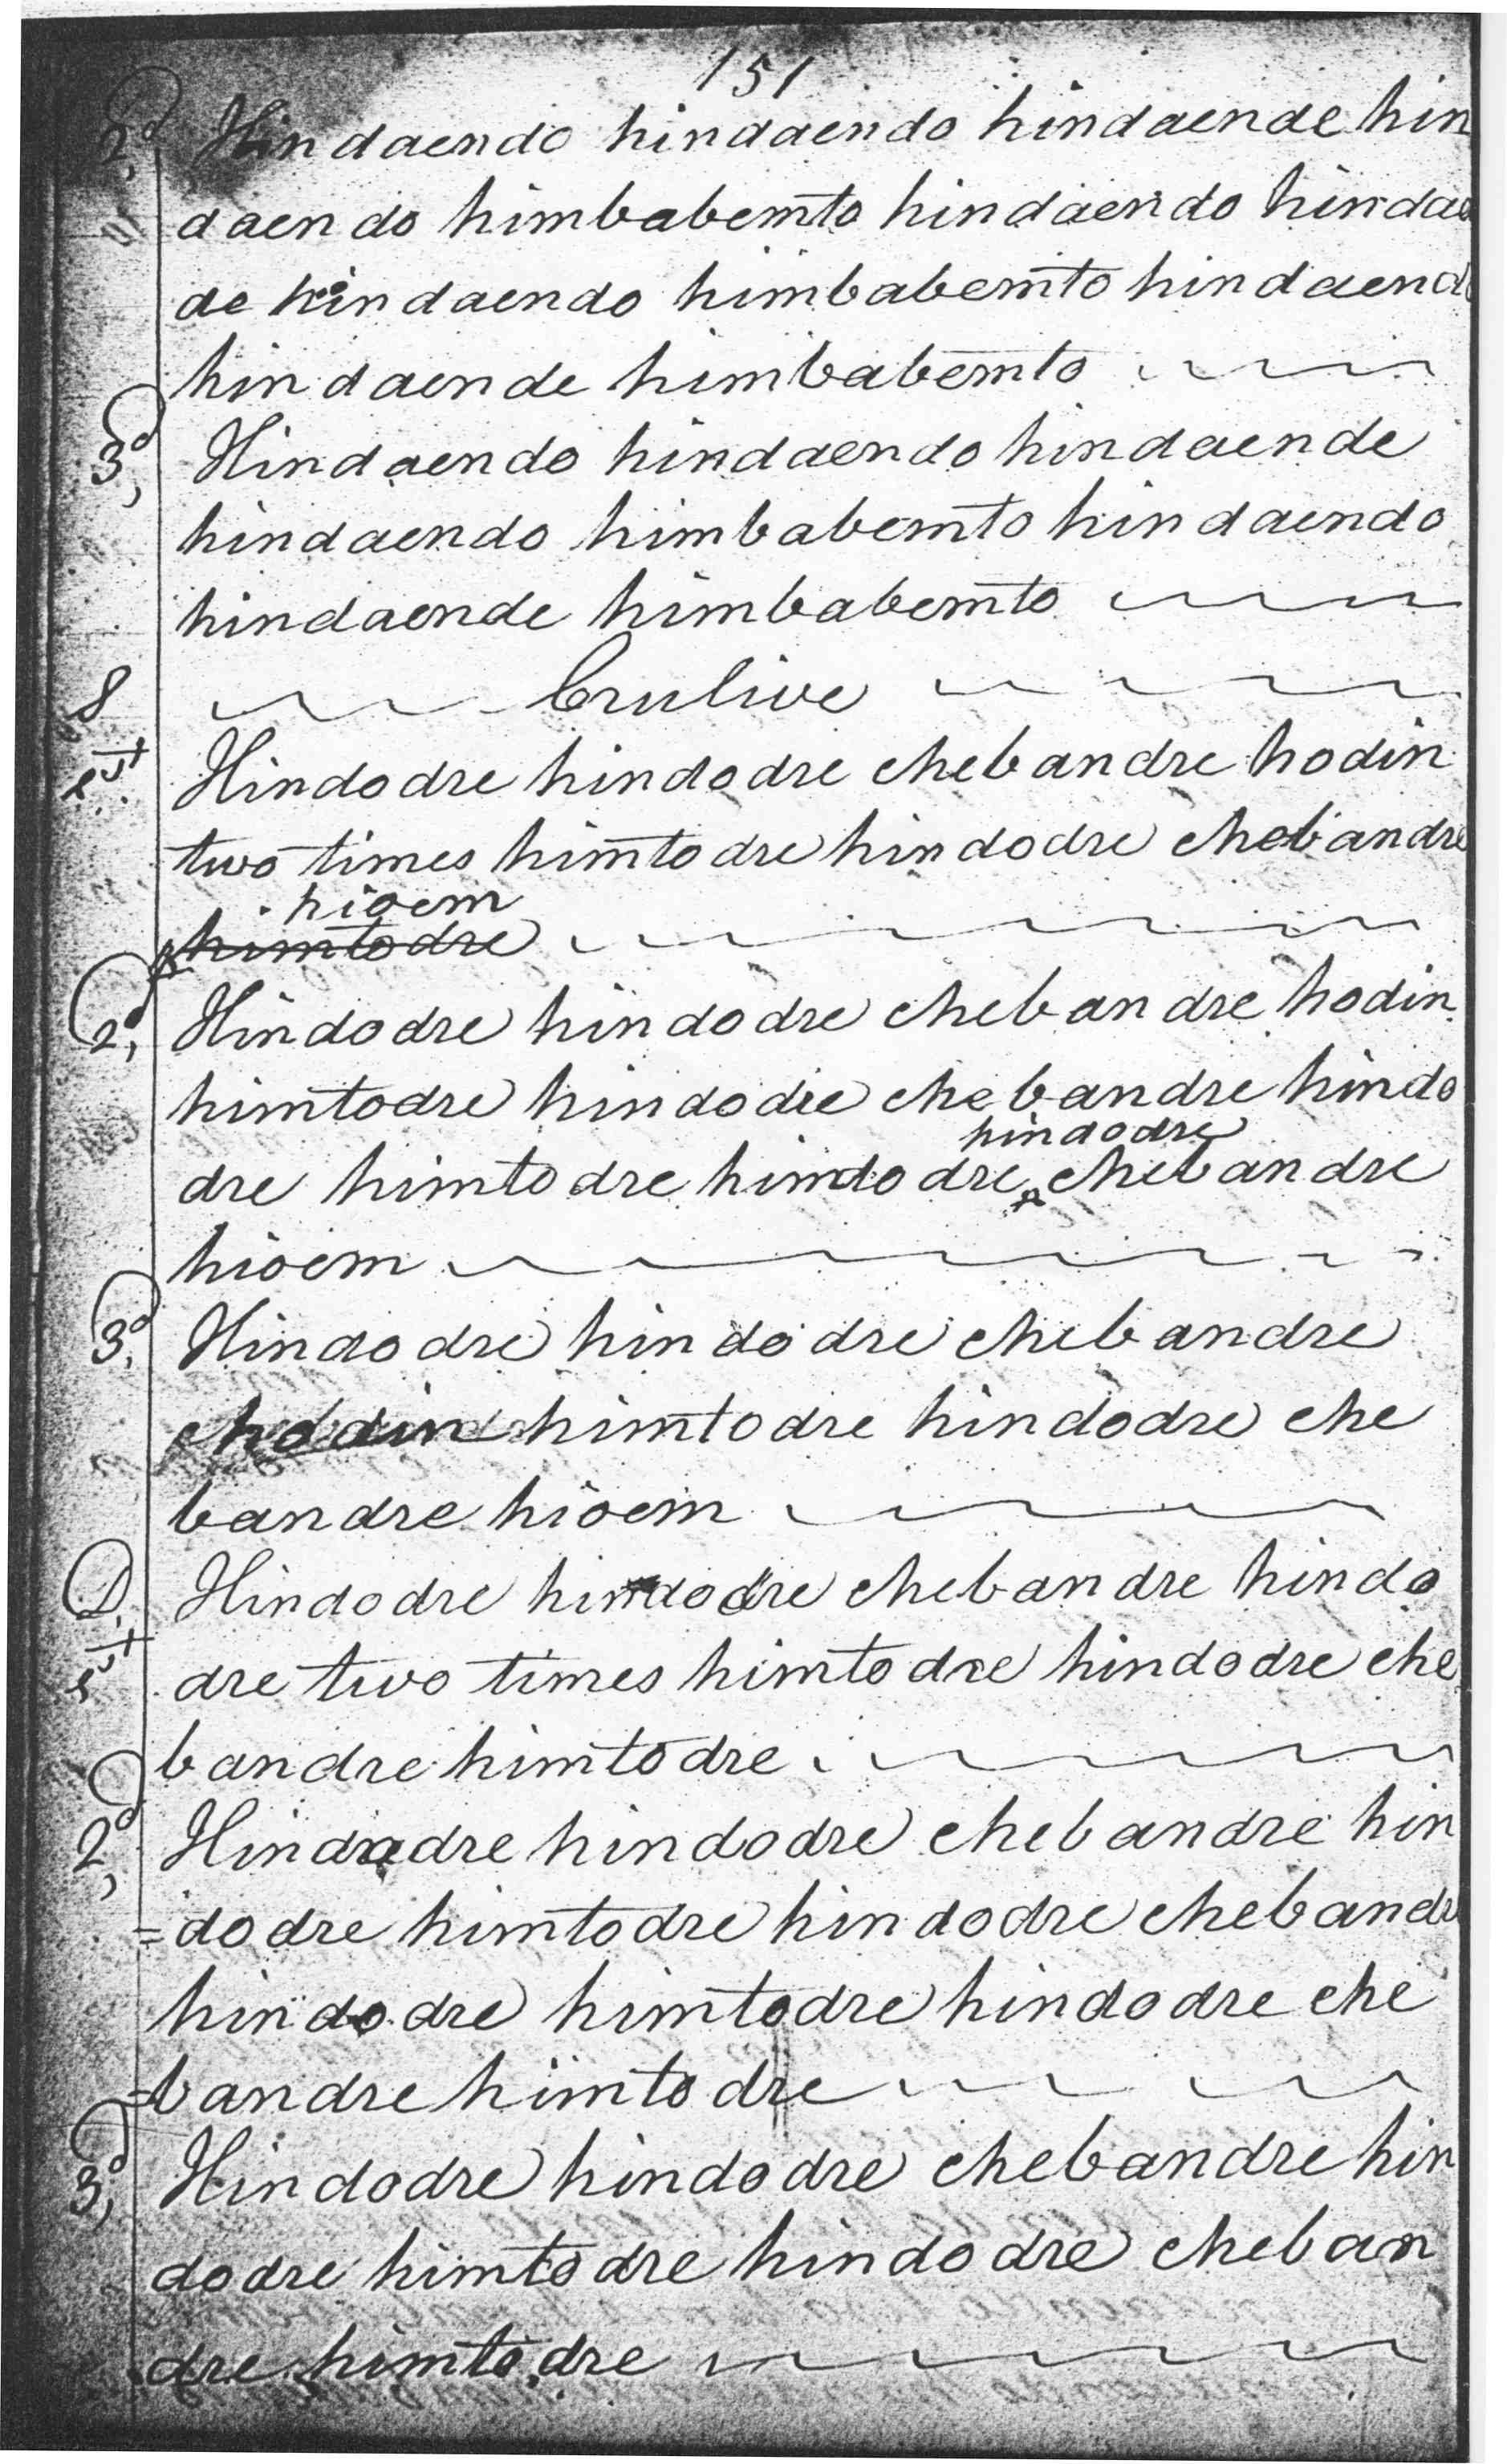 151
2d, Hindaendo hindaendo hindaende hin
daendo himbabemto hindaendo hindaen
de hindaendo himbabemto hindaendo
hindaende himbabemto
3d, Hindaendo hindaendo hindaende
hindaendo himbabemto hindaendo
hindaende himbabemto
8
1st Hindodre hindodre chebandre hodin
two times himtodre hindodre chebandre
hioem
himtodre
2d, Hindodre hindodre chebandre hodin
himtodre hindodre chebandre hindo
hindodre
dre himtodre hindodre chebandre
hioem
3d, Hindodre hindodre chebandre
hodin himtodre hindodre che
bandre hioem
D. Hindodre hindodre chebandre hindo
1st dre two times himtodre hindodre che
bandre himtodre
2d, Hindodre hindodre chebandre hin
=dodre himtodre hindodre chebandre
hindodre himtodre hindodre che
=bandre himtodre
3d, Hindodre hindodre chebandre hin
dodre himtodre hindodre cheban
dre himtodre